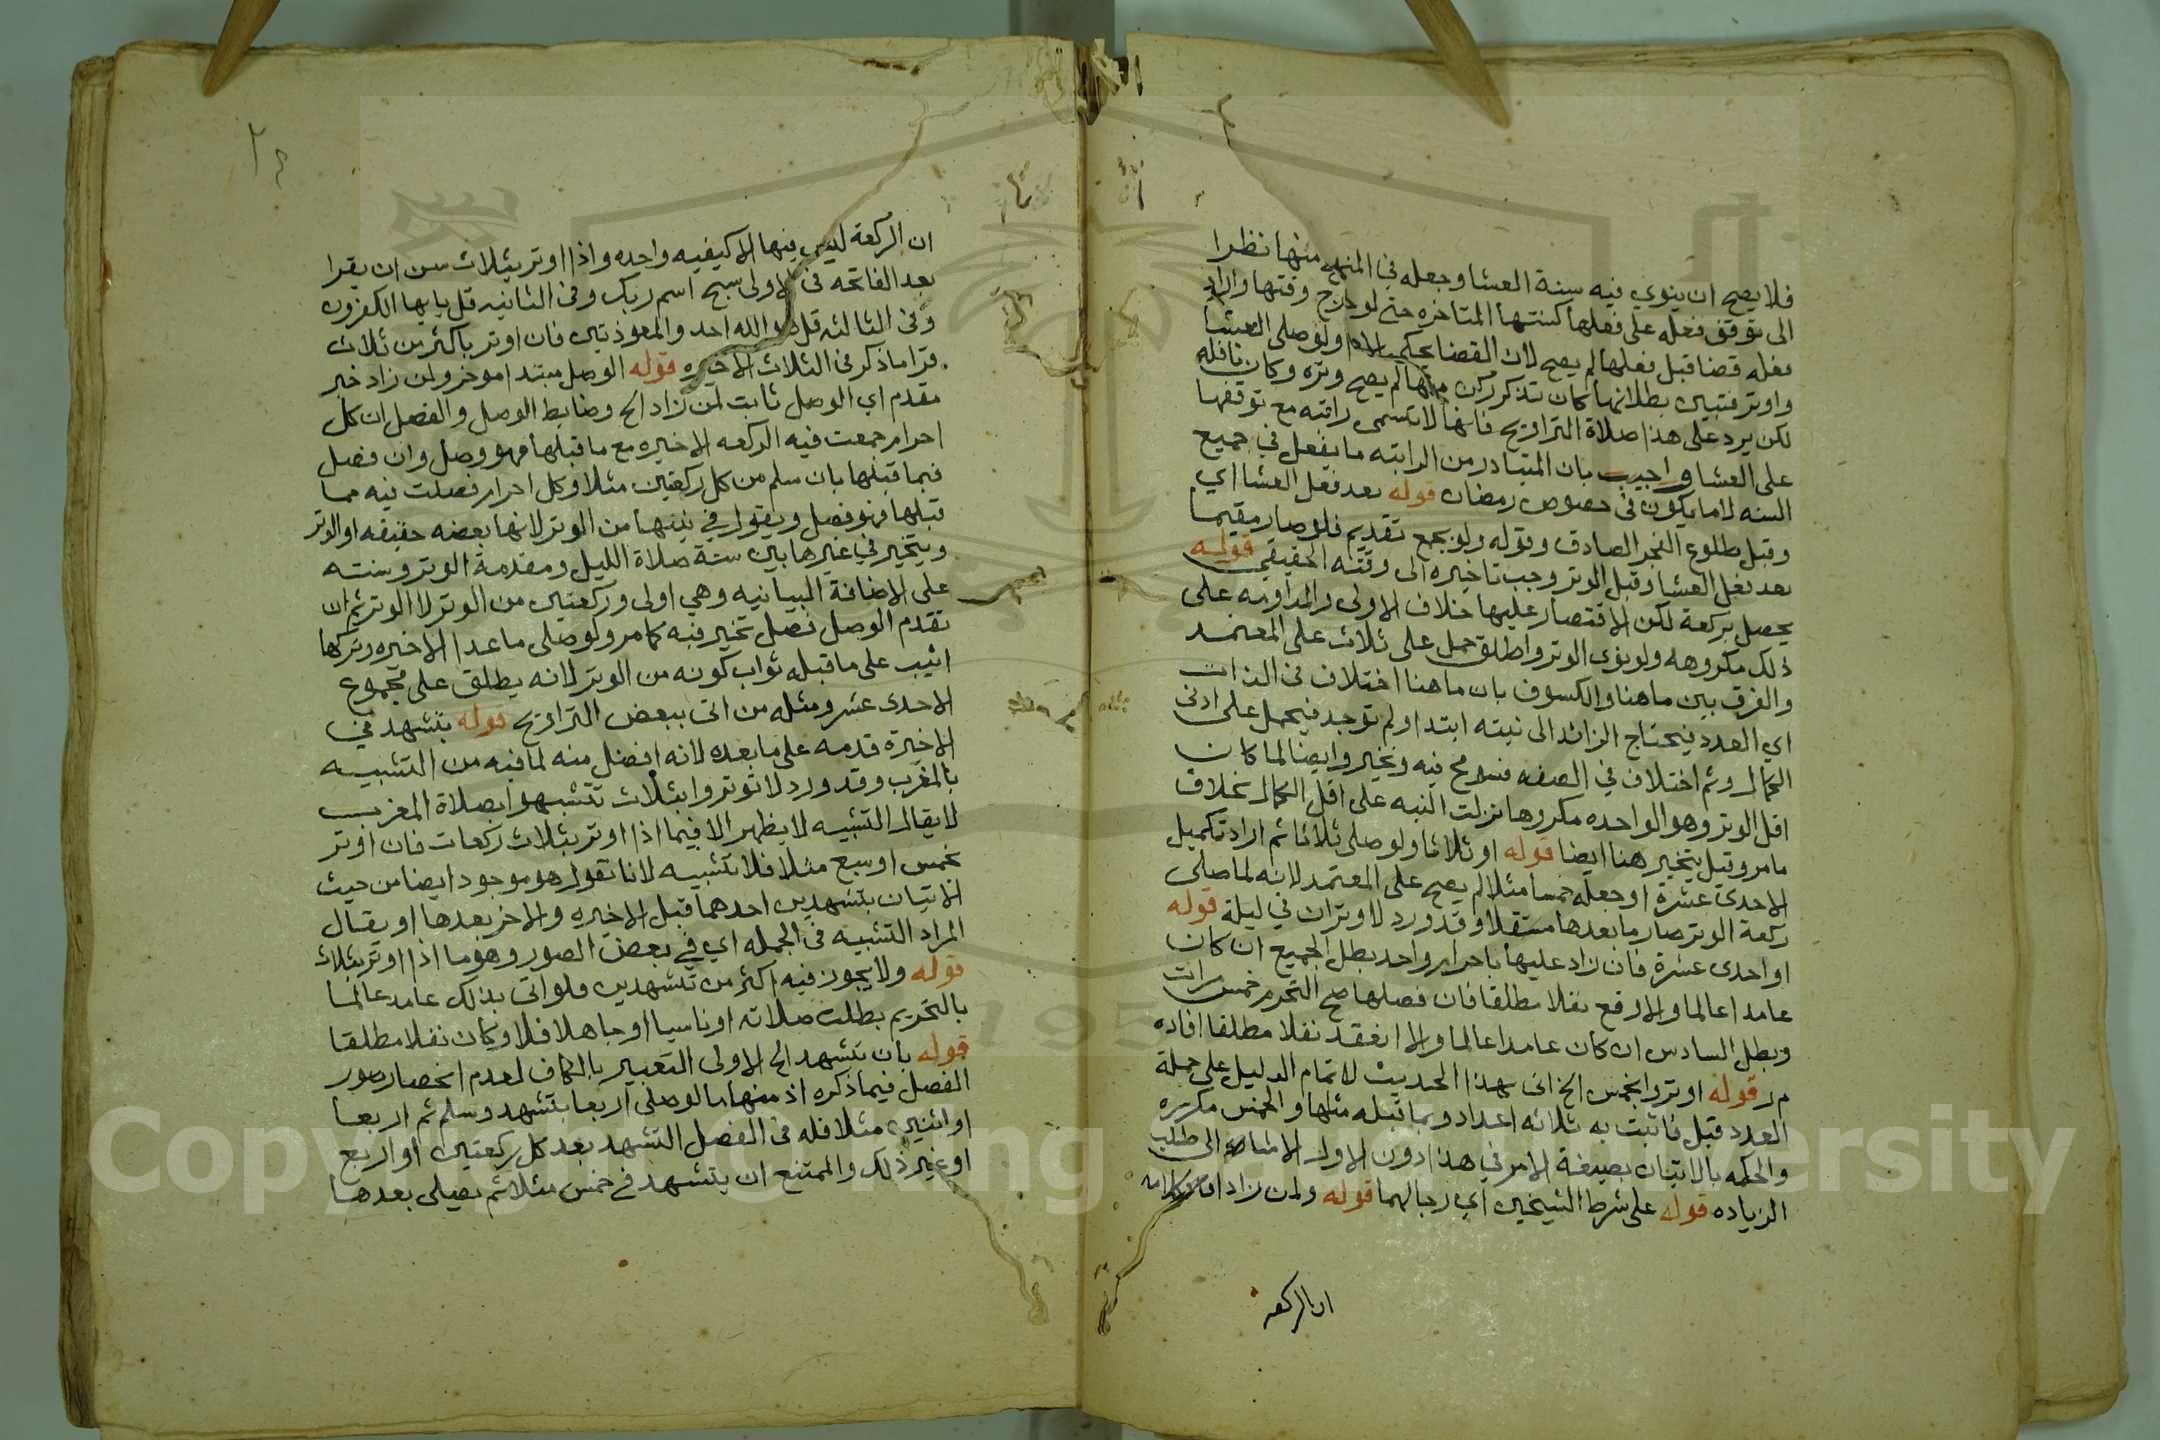 فلا يصح ان ينوي فيه سنة العشا وجعله في المنهج منها نظرا
الى توقف فعله على فعلها كسنتها المتاخره حتى لو خرج وقتها واراد
فعله قضا قبل فعلها لم يصح لان القضا يحكي الادا ولو صلى العشا
واوتر فتبين بطلانها كان تذكر ترك ركن منها لم يصح وتره وكان نافله
لكن يرد على هذا صلاة التراويح فانها لا تسمى راتبه مع توقفها
على العشا واجيب بان المتبادر من الراتبه ما يفعل في جميع
السنه لا ما يكون في خصوص رمضان قوله بعد فعل العشا اي
وقبل طلوع الفجر الصادق وقوله ولو بجمع تقديم فلو صار مقيما
بعد فعل العشا وقبل الوتر وجب تاخيره الى وقته الحقيقي قوله
يحصل بركعة لكن الاقتصار عليها خلاف الاولى والمداومه على
ذلك مكروهه ولو نوى الوتر واطلق حمل على ثلاث على المعتمد
والفرق بين ما هنا والكسوف بان ما هنا اختلاف في الذات
اي العدد فيحتاج الزائد الى نيته ابتدا ولم توجد فيحمل على ادنى
الكمال وثم اختلاف في الصفه فسومح فيه وتخير وايضا لما كان
اقل الوتر وهو الواحده مكروها نزلت النيه على اقل الكمال بخلاف
ما مر وقيل يتخير هنا ايضا قوله او ثلاثا ولو صلى ثلاثا ثم اراد تكميل
الاحدي عشرة او جعله خمسا مثلا لم يصح على المعتمد لانه لما صلى
ركعة الوتر صار ما بعدها مستقلا وقد ورد لا وتران في ليلة قوله
او احدى عشرة فان زاد عليها باحرام واحد بطل الجميع ان كان
عامدا عالما والا وقع نفلا مطلقا فان فصلها صح التحرم خمس مرات
وبطل السادس ان كان عامدا عالما والا انعقد نفلا مطلقا افاده
م ر قوله اوتروا بخمس الخ اتى بهذا الحديث لاتمام الدليل على جملة
العدد قبل فاثبت به ثلاثه اعداد وبما قبله مثلها والخمس مكرره
والحكمه بالاتيان بصيغة الامر في هذا دون الاول الاشارة الى طلب
الزياده قوله على شرط الشيخين اي رجالهما قوله ولمن زاد
ان الركعه
ان الركعة ليس فيها الا كيفيه واحده واذا اوتر بثلاث سن ان يقرا
بعد الفاتحه في الاولى سبح اسم ربك وفي الثانيه قل يايها الكفرون
وفي الثالثه قل هو الله احد والمعوذتين فان اوتر باكثر من ثلاث
قرا ما ذكر في الثلاث الاخيره قوله الوصل مبتدا موخر ولمن زاد خبر
مقدم اي الوصل ثابت لمن زاد الخ وضابط الوصل والفصل ان كل
احرام جمعت فيه الركعه الاخيره مع ما قبلها فهو وصل وان فصل
فيما قبلها بان سلم من كل ركعتين مثلا وكل احرام فصلت فيه مما
قبلها فهو فصل ويقول في نيتها من الوتر لانها بعضه حقيقه او الوتر
ويتخير في غيرها بين سنة صلاة الليل ومقدمة الوتر وسنته
على الاضافة البيانيه وهي اولى وركعتين من الوتر لا الوتر ثم ان
تقدم الوصل فصل تخير فيه كما مر ولو صلى ما عدا الاخيره وتركها
اثيب على ما قبله ثواب كونه من الوتر لانه يطلق على مجموع
الاحدى عشر ومثله من اتى ببعض التراويح قوله بتشهد في
الاخيرة قدمه على ما بعده لانه افضل منه لما فيه من التشبيه
بالمغرب وقد ورد لا توتروا بثلاث تتشبهوا بصلاة المغرب
لا يقال التشبيه لا يظهر الا فيما اذا اوتر بثلاث ركعات فان اوتر
بخمس او سبع مثلا فلا تشبيه لانا نقول هو موجود ايضا من حيث
الاتيان بتشهدين احدهما قبل الاخيره والاخر بعدها او يقال
المراد التشبيه في الجمله اي في بعض الصور وهو ما اذا اوتر بثلاث
قوله ولا يجوز فيه اكثر من تشهدين فلو اتى بذلك عامدا عالما
بالتحريم بطلت صلاته او ناسيا او جاهلا فلا وكان نفلا مطلقا
قوله بان تشهد الخ الاولى التعبير بالكاف لعدم انحصار صور
الفصل فيما ذكره اذ منها ما لو صلى اربعا بتشهد وسلم ثم اربعا
او اثنين مثلا فله في الفصل التشهد بعد كل ركعتين او اربع
او غير ذلك والممتنع ان يتشهد في خمس مثلا ثم يصلى بعدها
Copyright © King Saud University